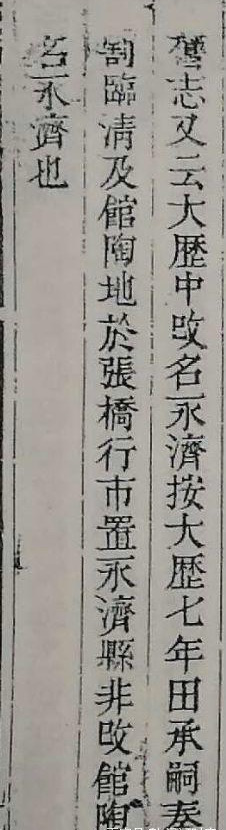 舊志又云大歷中改名永濟按大歷七年田承嗣奏
割臨清及館陶地於張橋行市置永濟縣非改館陶
名永濟也